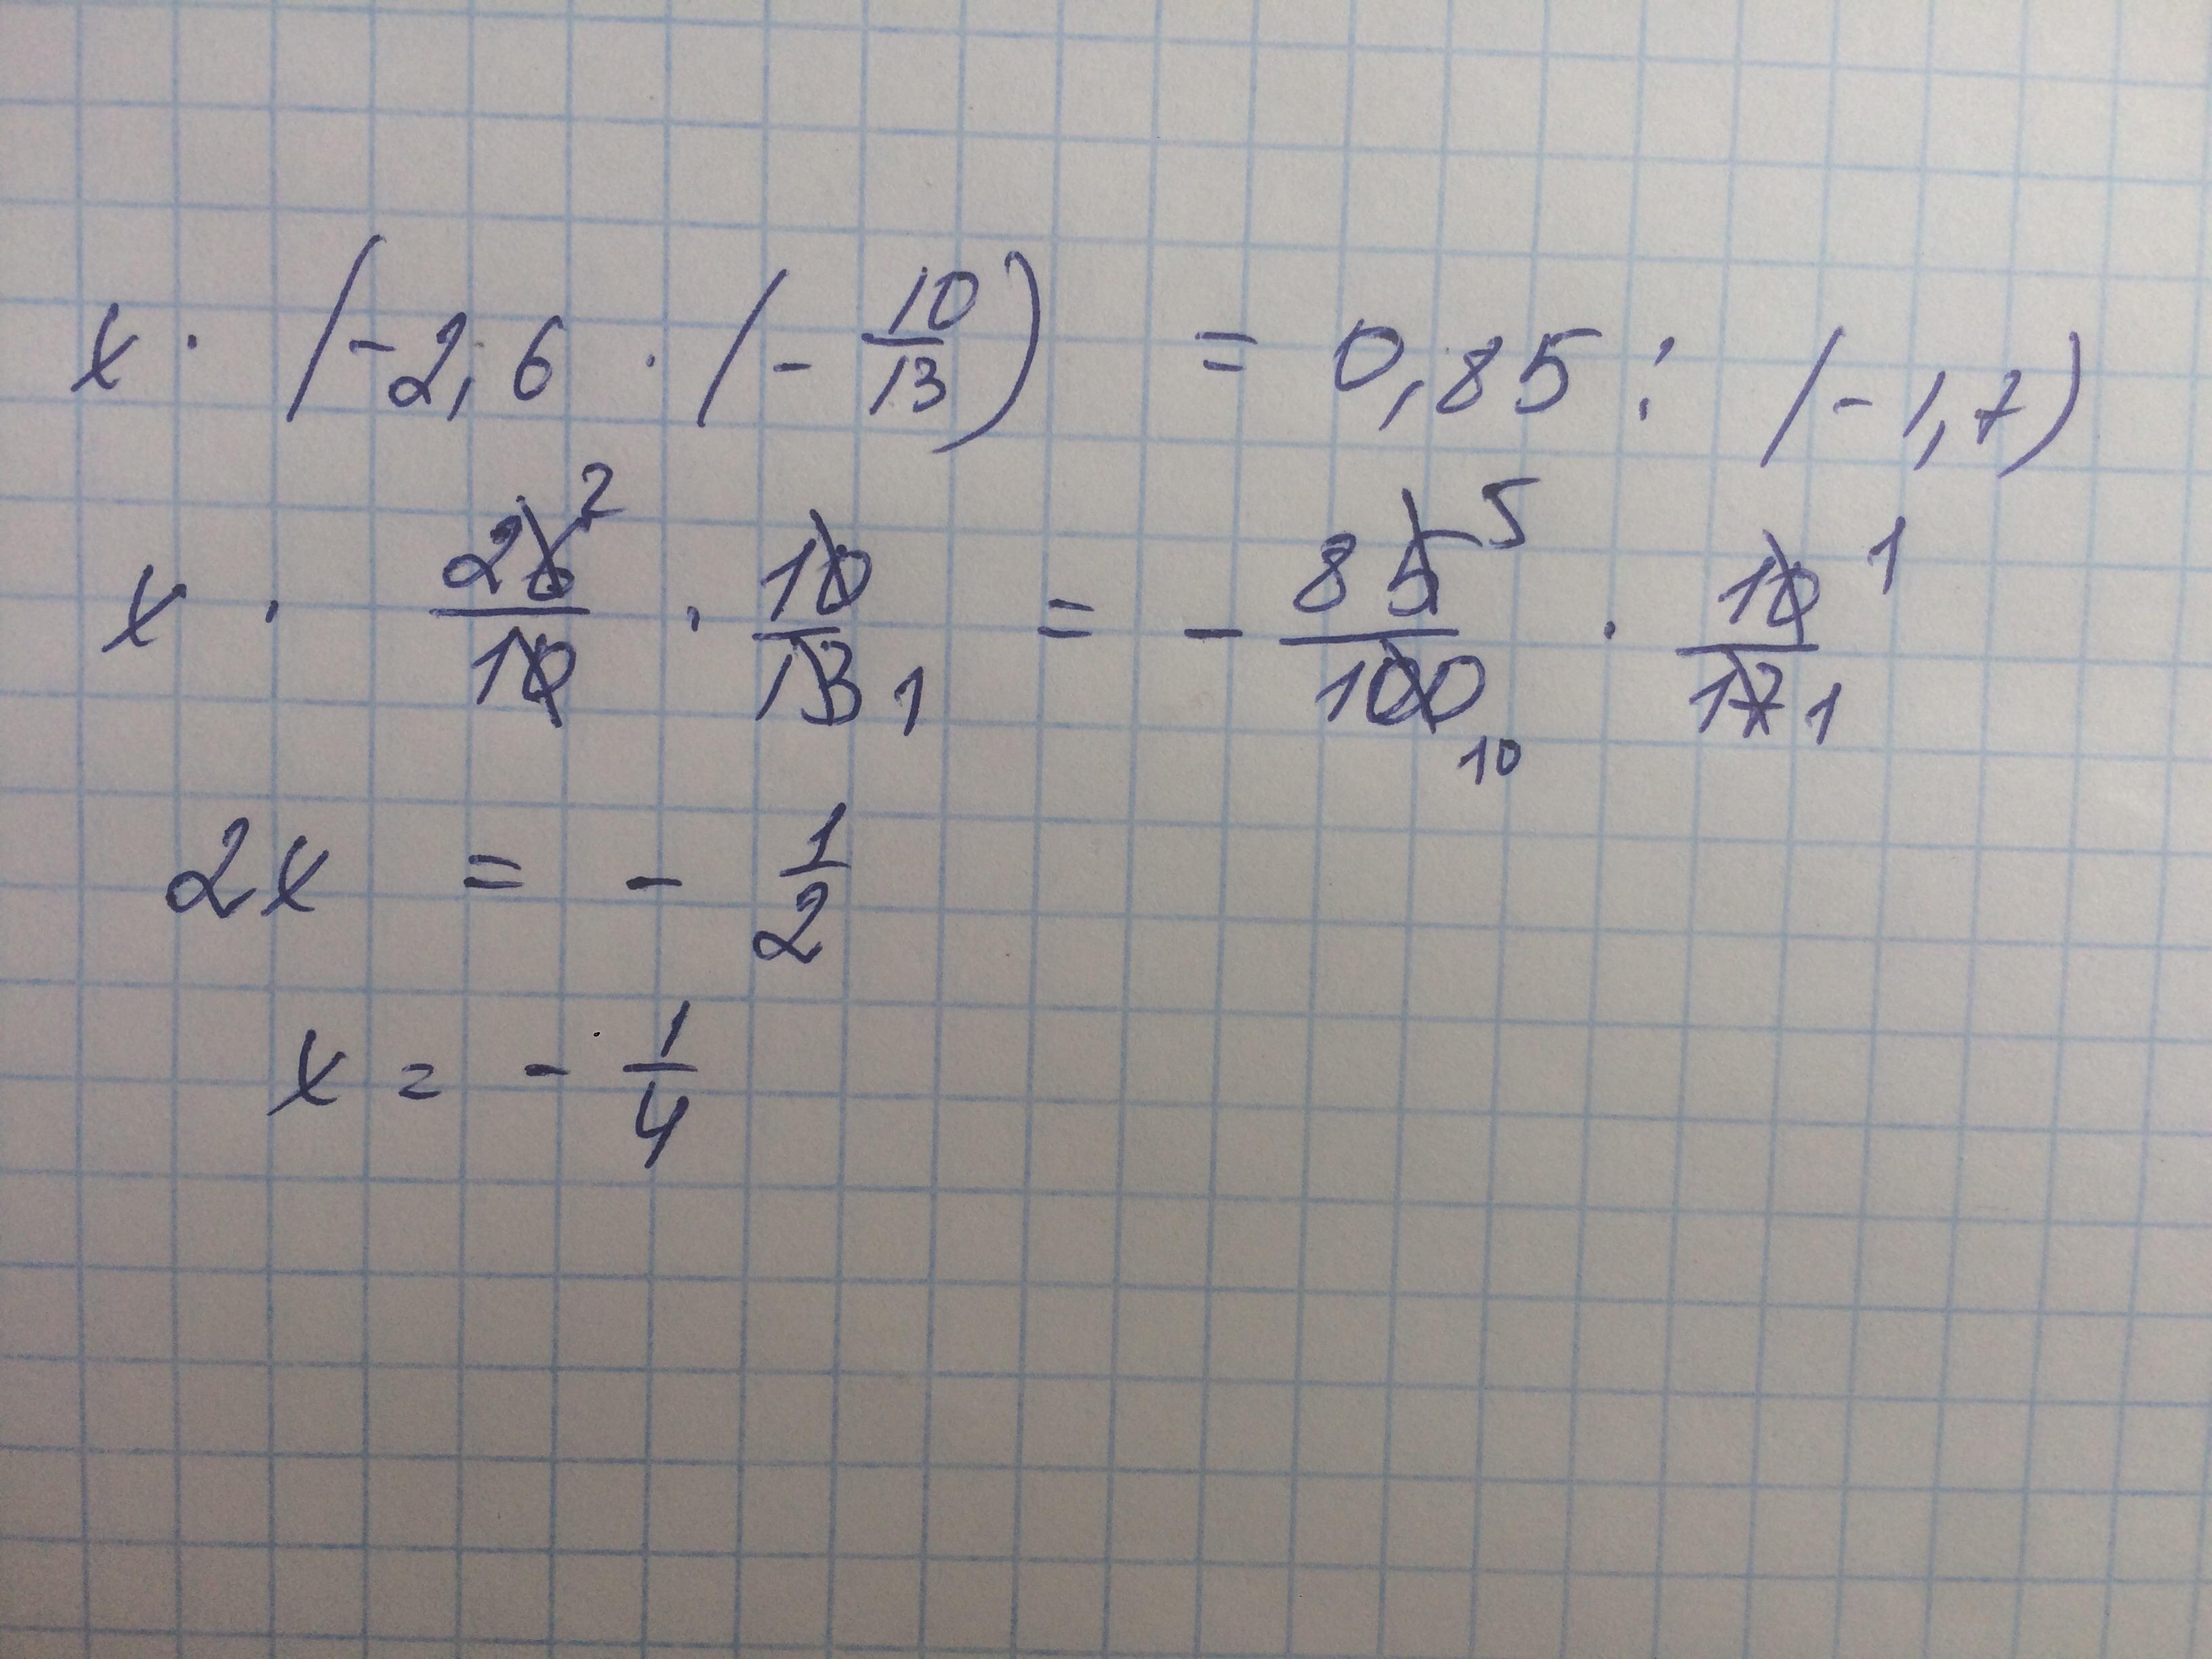 x · (-2,6 · (- 10/13) = 0,85 : (-1,7)
x · 26²/10 · 10/13 1 = - 85 5/100 10 · 10 1/17 1
2x = - 1/2
x = - 1/4